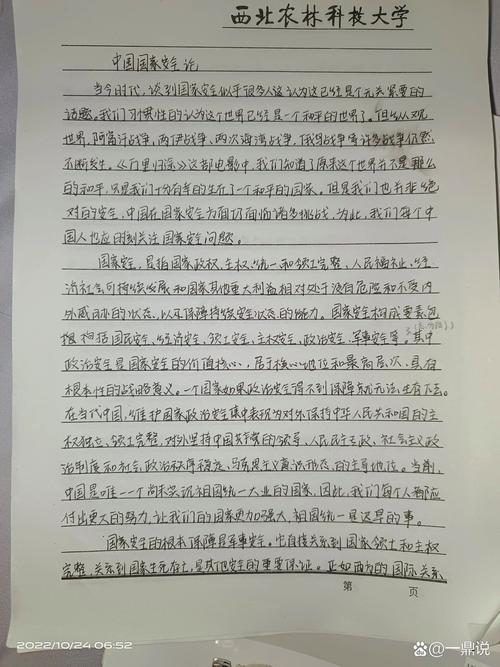 西北农林科技大学
中国国家安全论
当今时代，谈到国家安全似乎很多人这认为这已经是个无关紧要的
话题。我们习惯性的认为这个世界已经是一个和平的世界了。但纵观
世界，阿富汗战争，两伊战争，两次海湾战争，俄乌战争等许多战争仍然
不断发生。《万里归途》这部电影中，我们知道了原来这个世界并不是那么
的和平，只是我们十分有幸的生在了一个和平的国家。但是我们也并非绝
对的安全，中国在国家安全方面仍面临诸多挑战，为此，我们每个中
国人也应时刻关注国家安全问题。
国家安全，是指国家政权、主权、统一和领土完整、人民福祉、经
济社会可持续发展和国家其他重大利益相对处于没有危险和不受内
外威胁的状态，以及保障持续安全状态的能力。国家安全构成要素包
括 国民安全、经济安全、领土安全、主权安全、政治安全、军事安全等，其中
政治安全是国家安全的价值核心，居于核心地位和最高层次，具有
根本性的战略意义。一个国家如果政治安全得不到保障就无法生存下去。
在当代中国，维护国家政治安全集中表现为对外保持中华人民共和国的主
权独立、领土完整，对外坚持中国共产党的领导、人民民主专政、社会主义政
治制度和社会政治秩序稳定、马克思主义意识形态的主导地位。当前，
中国是唯一个尚未完成祖国统一大业的国家，因此，我们每个人都应
付出更大的努力，让我们的国家更加强大，祖国统一是迟早的事。
国家安全的根本保障是军事安全。它直接关系到国家领土和主权
完整，关系到国家生死存亡，是其他安全的重要保证。正如西方的国际关系
第 页
2022/10/24 06:52
@一鼎说